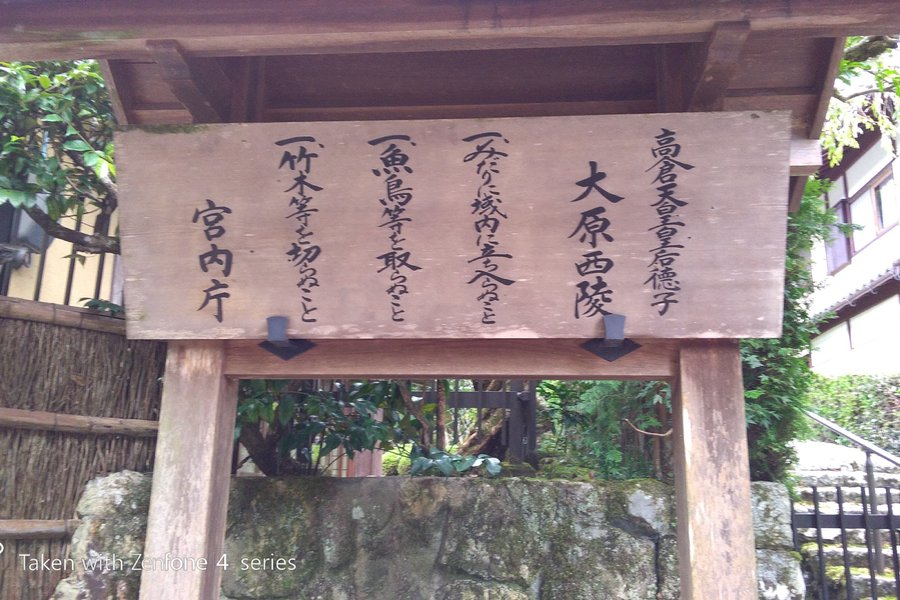 高倉天皇皇后徳子
大原西陵
一、みだりに域内に立ち入らぬこと
一、魚鳥等を取らぬこと
一、竹木等を切らぬこと
宮内庁
Taken with Zenfone 4 series